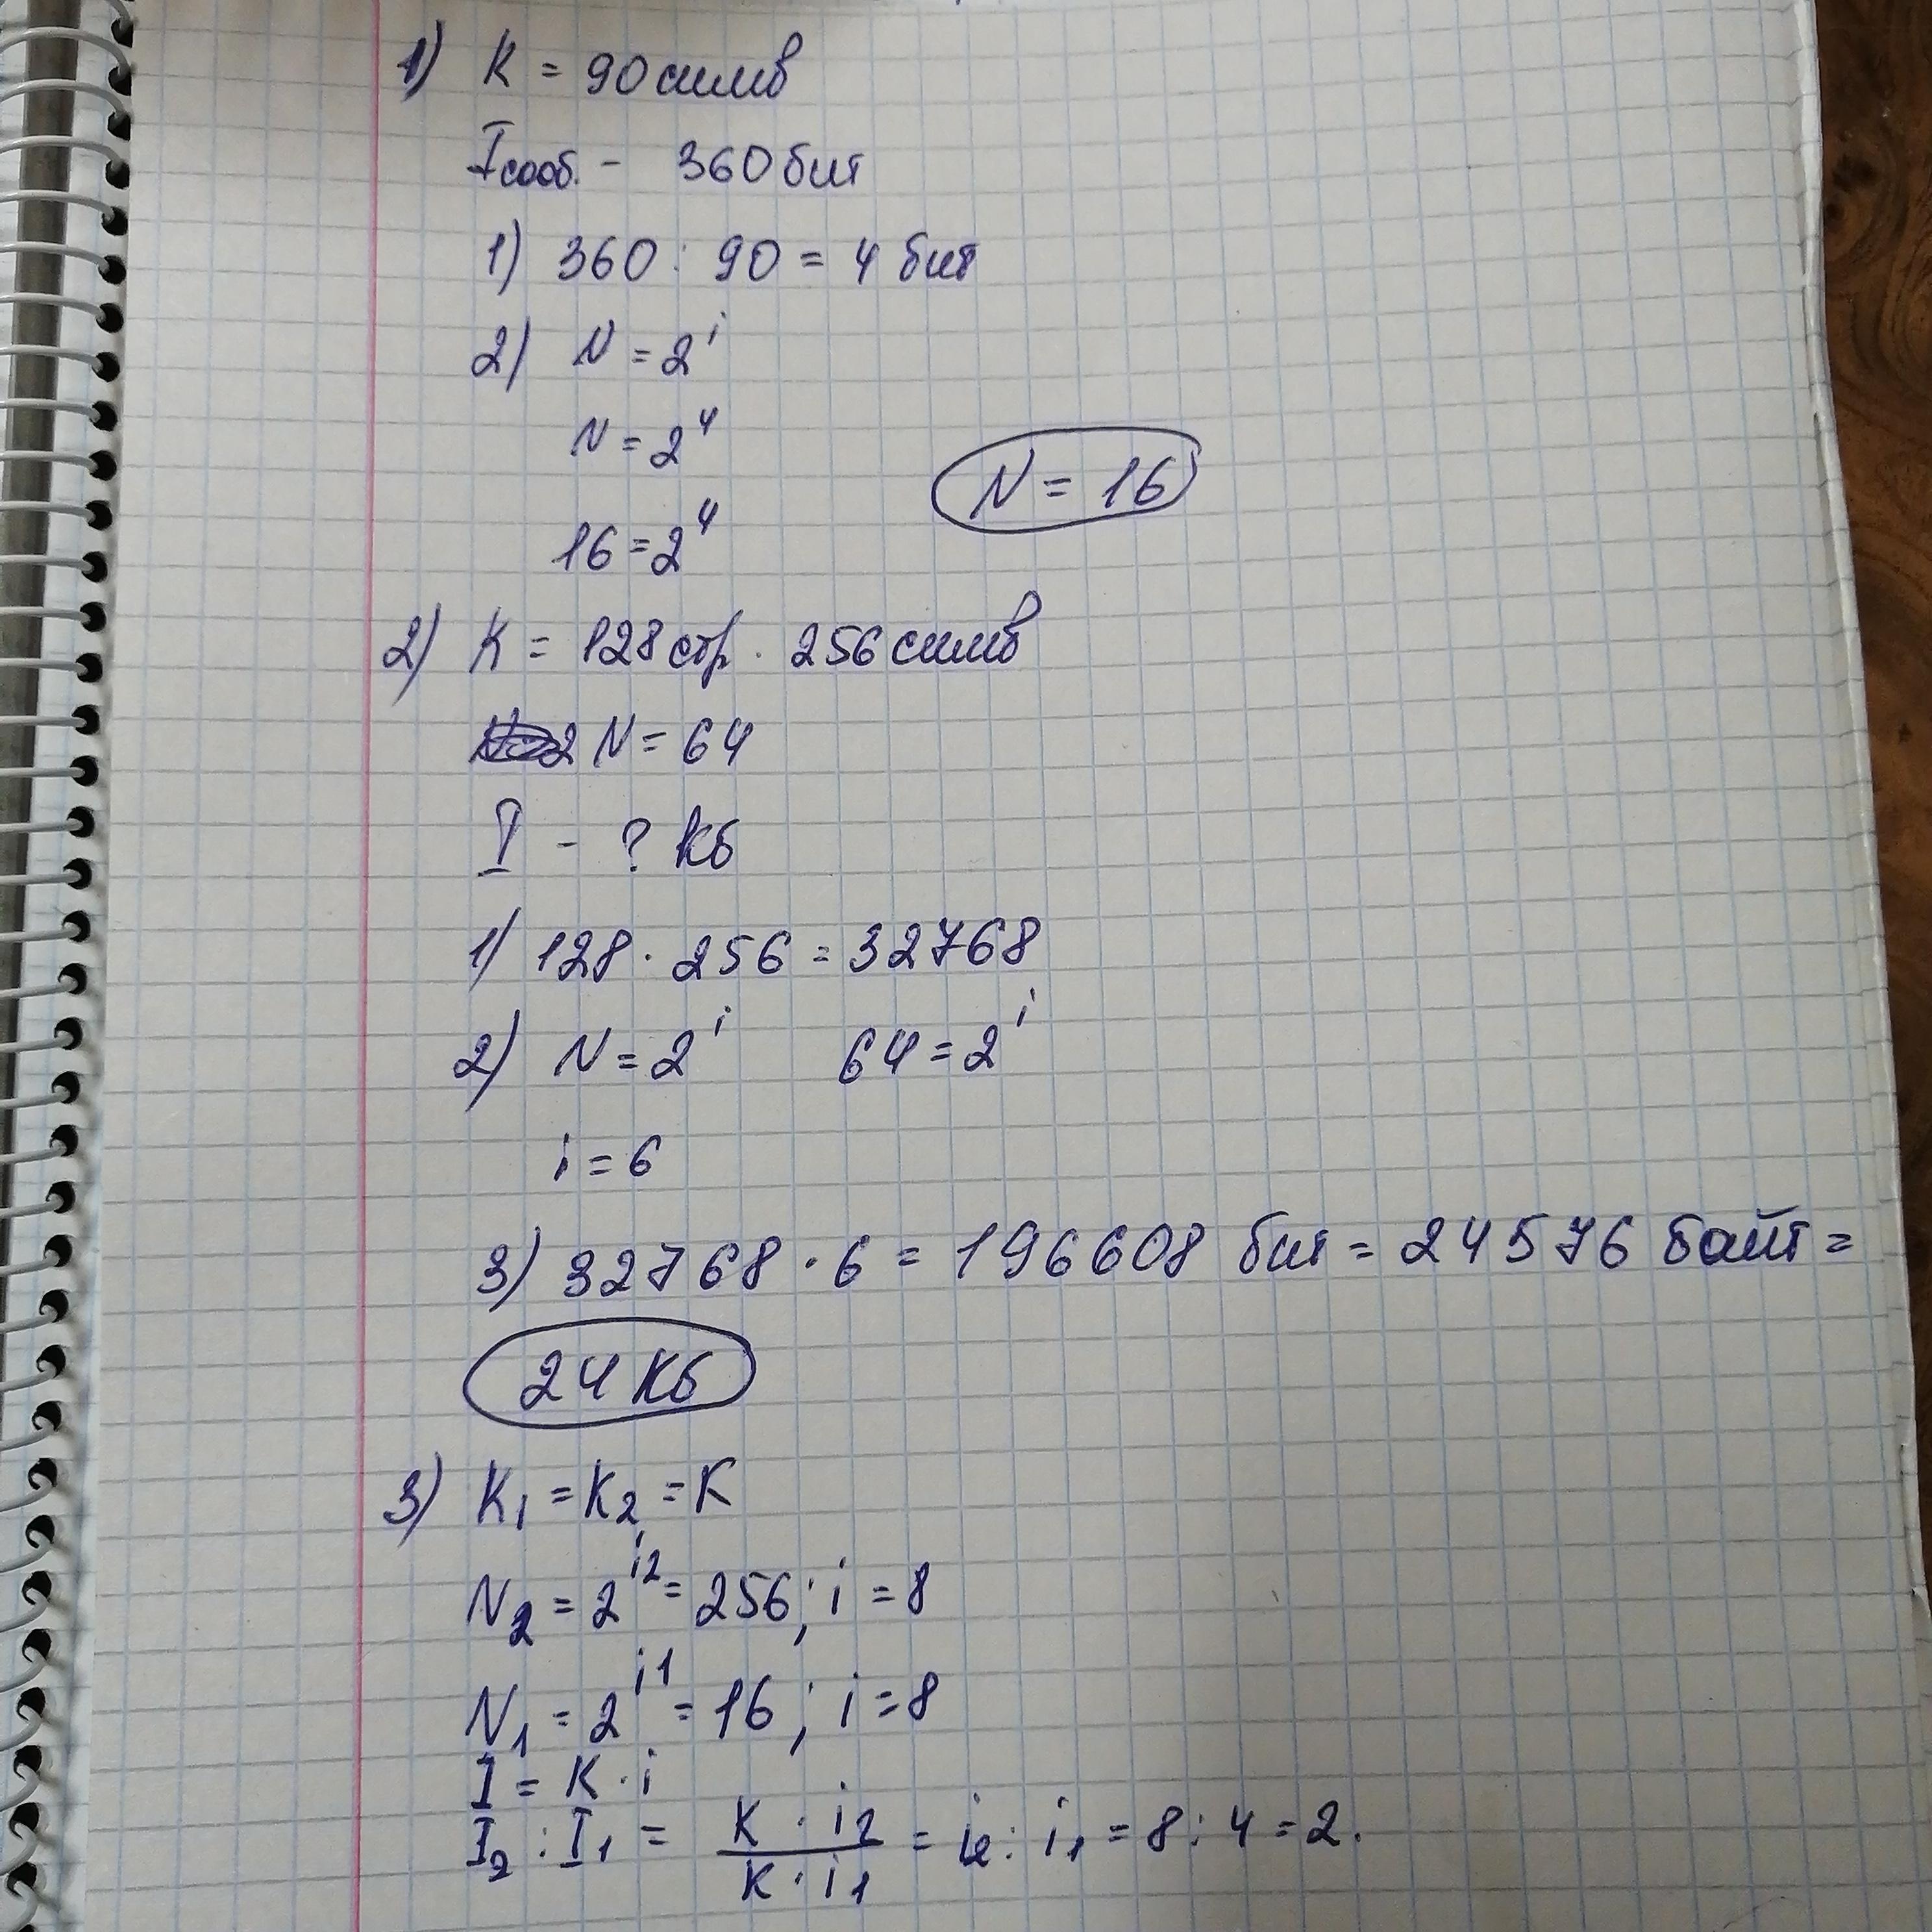 1) K = 90 симв
Iсооб. - 360 бит
1) 360 : 90 = 4 бит
2) N = 2^i
N = 2^4
N = 16
16 = 2^4
2) K = 128 стр · 256 симв
N = 64
I - ? Кб
1) 128 · 256 = 32768
2) N = 2^i 64 = 2^i
i = 6
3) 32768 · 6 = 196608 бит = 24576 байт =
24 Кб
3) K₁ = K₂ = K
N₂ = 2^i2 = 256; i = 8
N₁ = 2^i1 = 16; i = 8
I = K · i
I₂ : I₁ = K · i₂ / K · i₁ = i₂ : i₁ = 8 : 4 = 2.